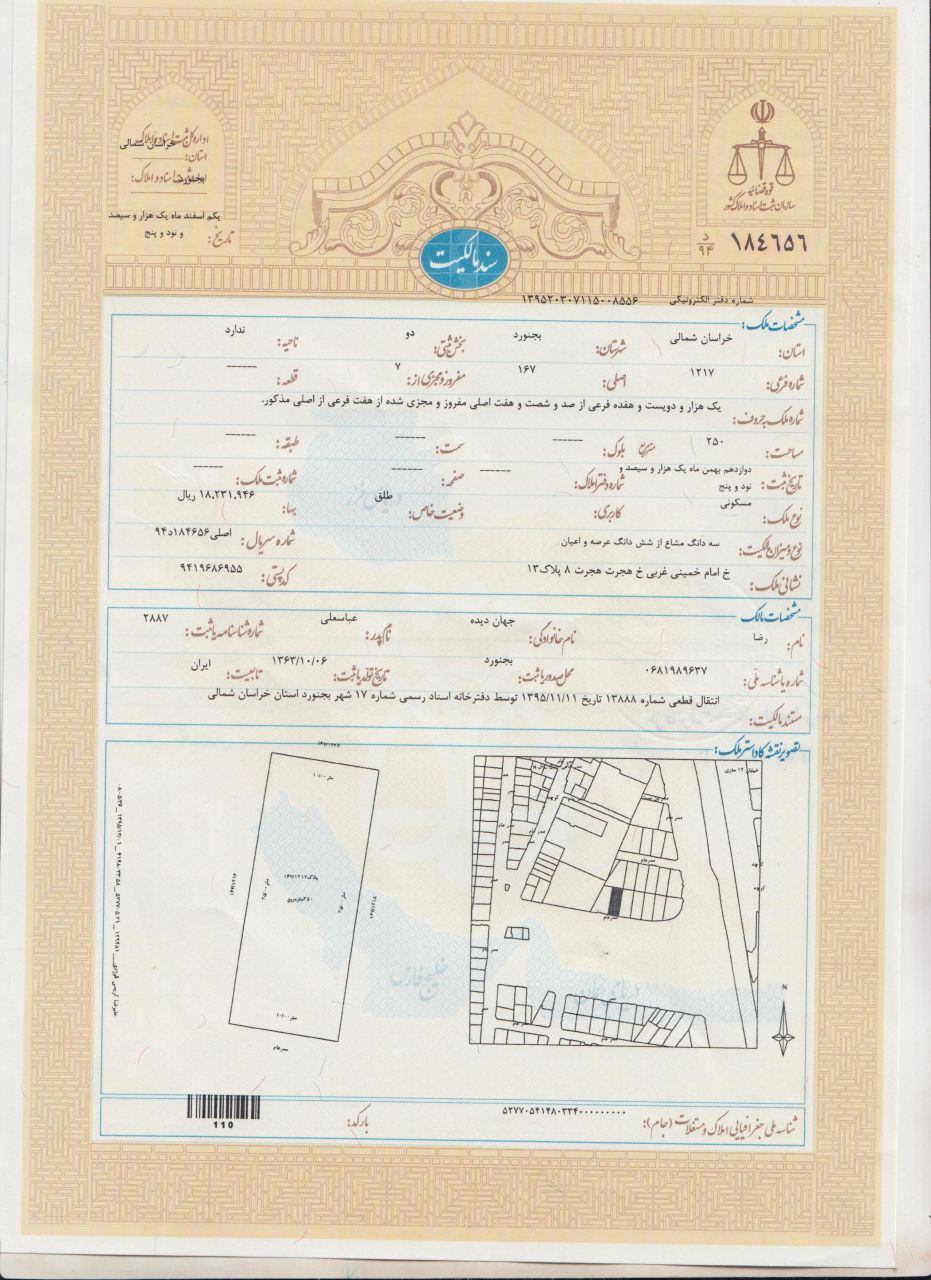 اداره کل ثبت اسناد و املاک
استان: خراسان شمالی
اداره ثبت اسناد و املاک: بجنورد
تاریخ: یکم اسفند ماه یک هزار و سیصد و نود و پنج
قوه قضائیه
سازمان ثبت اسناد و املاک کشور
۱۸٤۶۵۶ د ۹۴
سند مالکیت
شماره دفتر الکترونیکی ۱۳۹۵۲۰۳۰۷۱۱۵۰۰۸۵۵۶
مشخصات ملک:
استان: خراسان شمالی شهرستان: بجنورد بخش ثبتی: دو ناحیه: ندارد
شماره فرعی: ۱۲۱۷ اصلی: ۱۶۷ مفروز و مجزی از: ۷ قطعه: ------
شماره ملک به حروف: یک هزار و دویست و هفده فرعی از صد و شصت و هفت اصلی مفروز و مجزی شده از هفت فرعی از اصلی مذکور.
مساحت: ۲۵۰ مترمربع بلوک: ------ سمت: ------ طبقه: ------
تاریخ ثبت: دوازدهم بهمن ماه یک هزار و سیصد و نود و پنج شماره دفتر املاک: ------ صفحه: ------ شماره ثبت ملک: ------
نوع ملک: مسکونی کاربری: وضعیت خاص: طلق بها: ۱۸,۲۳۱,۹۴۶ ریال
نوع و میزان مالکیت: سه دانگ مشاع از شش دانگ عرصه و اعیان شماره سریال: اصلی۱۸۴۶۵۶د۹۴
نشانی ملک: خ امام خمینی غربی خ هجرت هجرت ۸ پلاک۱۲ کد پستی: ۹۴۱۹۶۸۶۹۵۵
مشخصات مالک
نام: رضا نام خانوادگی: جهان دیده نام پدر: عباسعلی شماره شناسنامه یا ثبت: ۲۸۸۷
شماره یا شناسه ملی: ۰۶۸۱۹۸۹۶۳۷ محل صدور یا ثبت: بجنورد تاریخ تولد یا ثبت: ۱۳۶۳/۱۰/۰۶ تابعیت: ایران
مستند مالکیت: انتقال قطعی شماره ۱۳۸۸۸ تاریخ ۱۳۹۵/۱۱/۱۱ توسط دفترخانه اسناد رسمی شماره ۱۷ شهر بجنورد استان خراسان شمالی
تصویر نقشه کاداستر ملک:
۱۰/۰۰ متر
پلاک۱۶۷/۱۲۱۷
۲۵۰مترمربع
۱۶۷/۱۲۱۸
۱۰/۰۰ متر
ممرعام
خیابان ۱۲ متری
ممر عام
ممر عام
ممر عام
ممرعام
کوچه
کوچه
N
دریای خزر
خلیج فارس
دریای عمان
شناسه ملی جغرافیایی املاک و مستغلات (جام): ۵۲۷۷۰۵۴۱۴۸۰۳۳۴۰۰۰۰۰۰۰۰۰
بارکد:
110